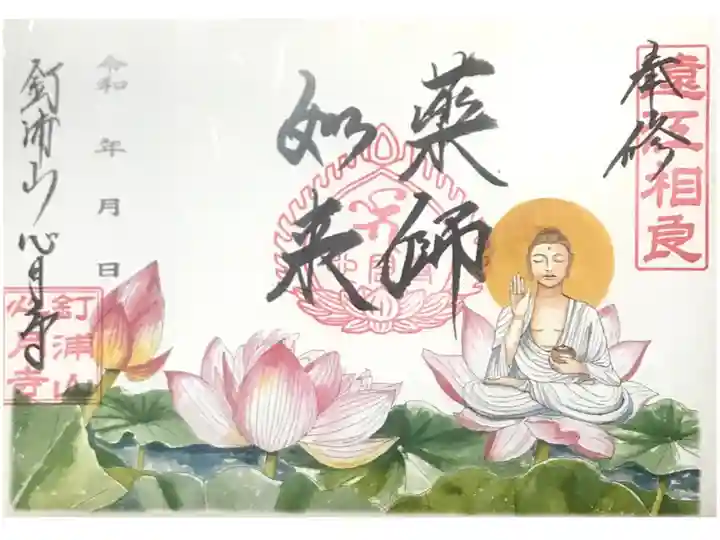 奉修
遠江相良
薬師
如来
令和　年　月　日
釘浦山 心月寺
釘浦山
心月寺